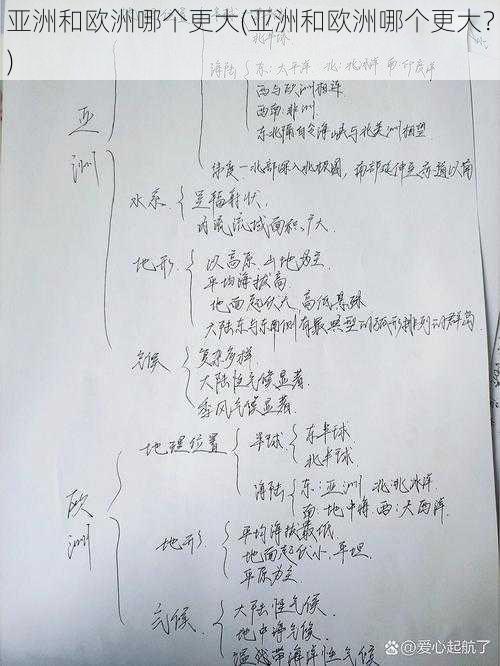 亚洲和欧洲哪个更大(亚洲和欧洲哪个更大?
)
北半球
海陆 东:太平洋 北:北冰洋 南:印度洋
西与欧洲相连
西南:非洲
东北隔白令海峡与北美洲相望
纬度—北部深入北极圈,南部延伸至赤道以南
亚洲
水系 呈辐射状
内流流域面积广大
地形 以高原山地为主
平均海拔高
地面起伏大,高低悬殊
大陆东与东南侧有最典型的弧形排列的群岛
气候 复杂多样
大陆性气候显著
季风气候显著
欧洲
地理位置 半球 东半球
北半球
海陆 东:亚洲 北:北冰洋
南:地中海 西:大西洋
地形 平均海拔最低
地面起伏小,平坦
平原为主
气候 大陆性气候
地中海气候
温带海洋性气候
@爱心起航了